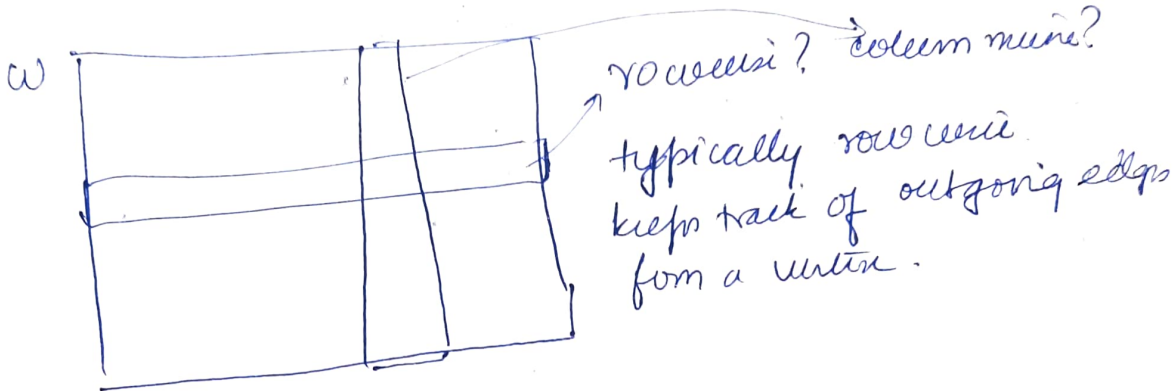 ω
rowwise? columnwise?
typically rowwise
keeps track of outgoing edges
fom a vertex.